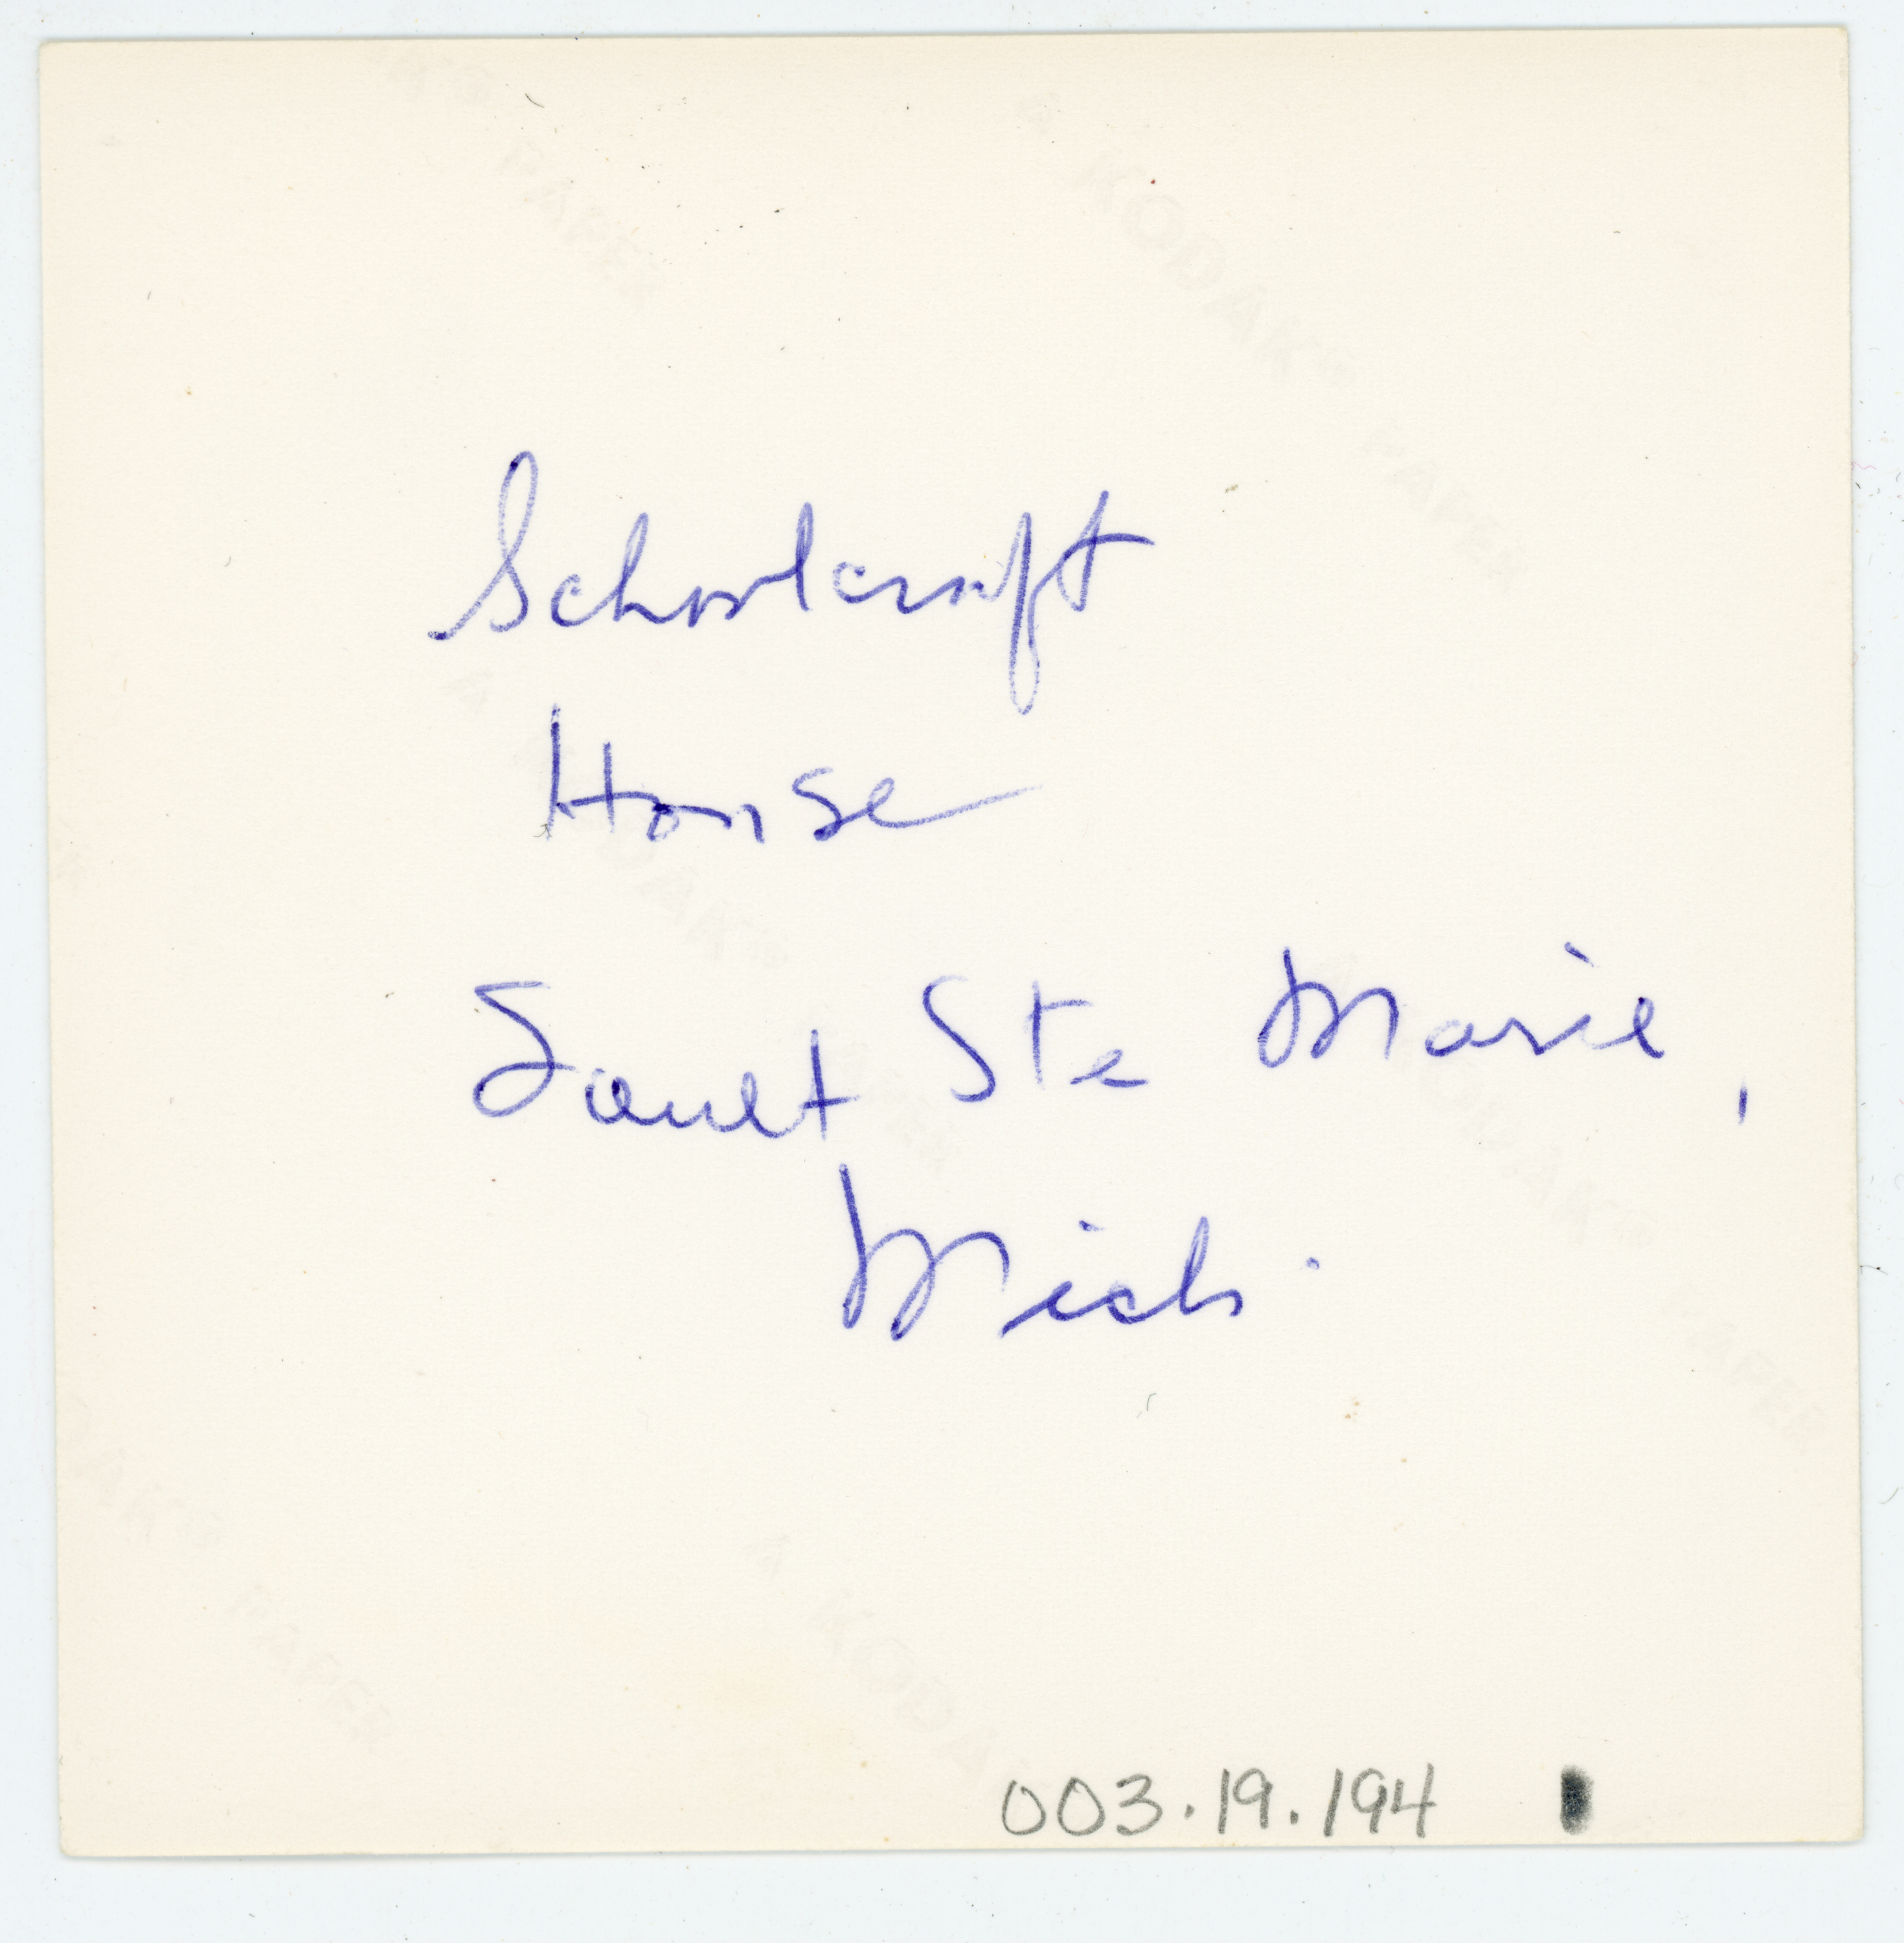 Schoolcraft
House
Sault Ste Marie,
Mich.
003.19.194